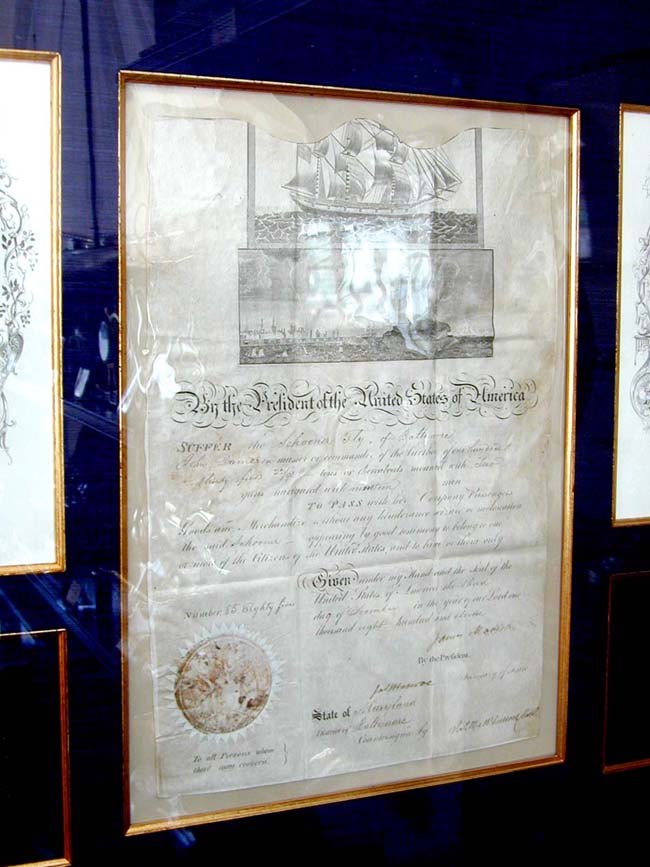 By the President of the United States of America
SUFFER the Schooner Fly, of Baltimore
master or commander, of the burthen of one hundred
tons or thereabouts mounted with
guns navigated with men
TO PASS with her Company Passengers
Goods and Merchandize without any hinderance seizure or molestation
the said Schooner appearing by good testimony to belong to one
or more of the Citizens of the United States and to him or them only
Given under my Hand and the Seal of the
United States of America the
day of December in the year of our Lord one
thousand eight hundred and eleven
Number 85 Eighty five
James Madison
By the President.
Jas Monroe Secretary of State
State of Maryland
District of Baltimore
Countersigned by
To all Persons whom
these may concern.